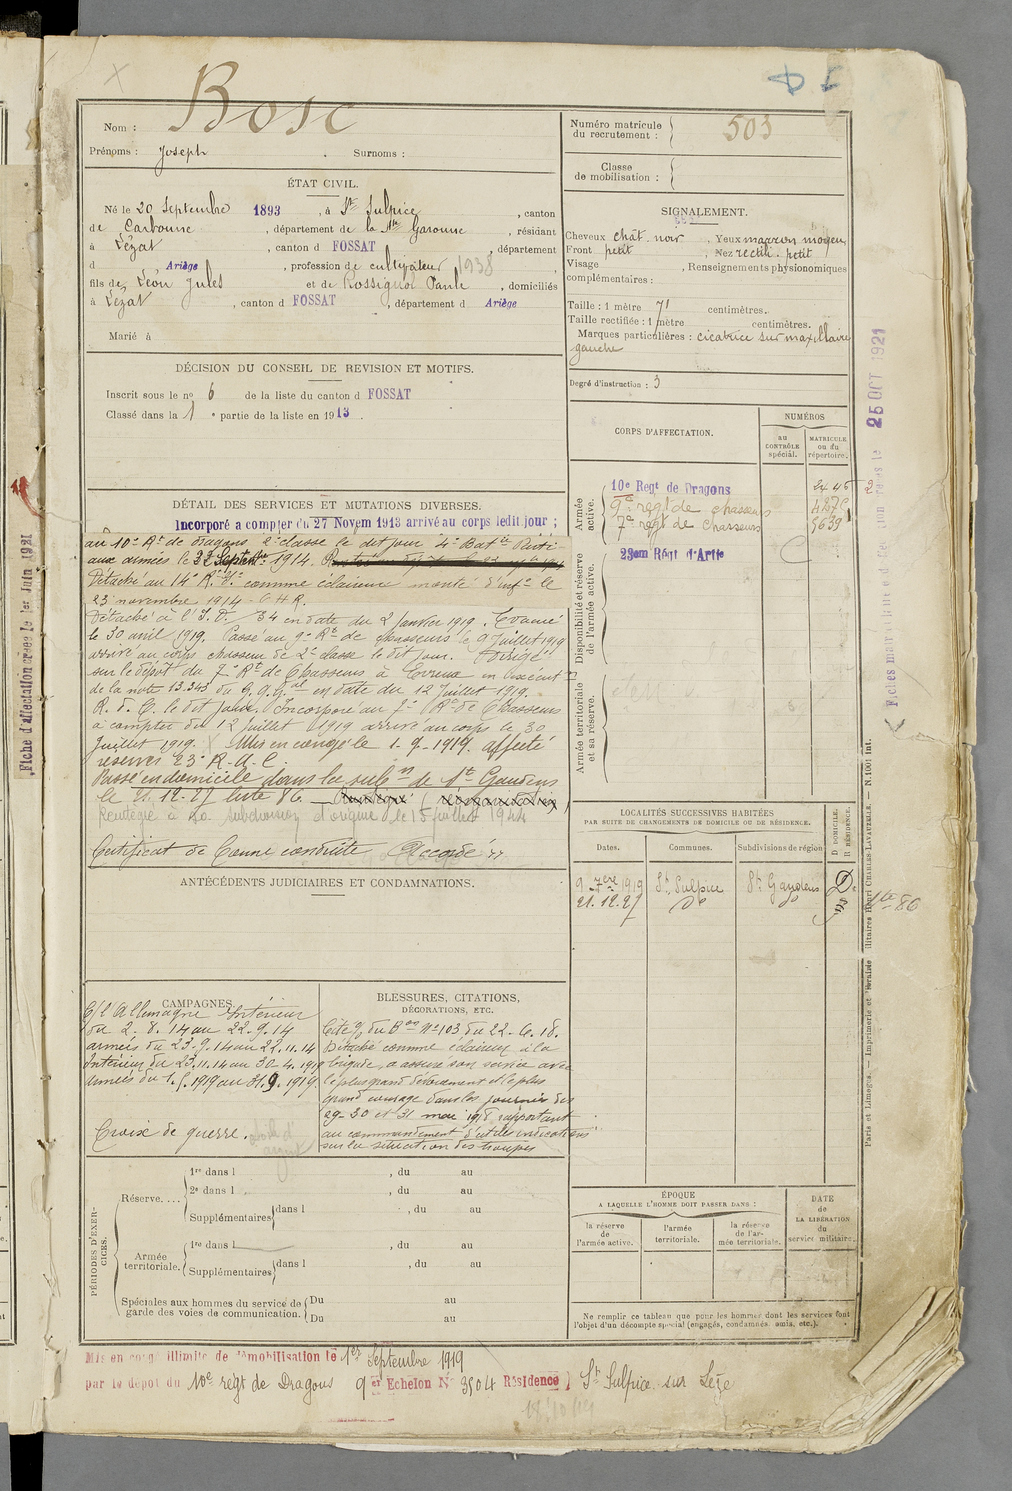 Bosc
Nom :
Prénoms : Joseph . Surnoms :
Numéro matricule du recrutement : 503
Classe de mobilisation :
ÉTAT CIVIL.
Né le 20 Septembre 1893, à St Sulpice, canton
de Carbonne, département de la Hte Garonne, résidant
à Lézat, canton d FOSSAT, département
d Ariège, profession de cultivateur 1938,
fils de Léon Jules et de Rossignol Paule, domiciliés
à Lézat, canton d FOSSAT, département d Ariège
Marié à
SIGNALEMENT.
Cheveux chât. noir. Yeux marron moyen
Front petit, Nez rectil. petit
Visage, Renseignements physionomiques
complémentaires :
Taille : 1 mètre 71 centimètres.
Taille rectifiée : 1 mètre centimètres.
Marques particulières : cicatrice sur maxillaire
gauche
Degré d'instruction : 3
DÉCISION DU CONSEIL DE REVISION ET MOTIFS.
Inscrit sous le no 6 de la liste du canton d FOSSAT
Classé dans la 1 e partie de la liste en 1913.
CORPS D'AFFECTATION.
NUMÉROS
au CONTRÔLE spécial.
MATRICULE ou du répertoire.
Armée active.
10e Regt de Dragons
9e regt de chasseurs
7e regt de chasseurs 5639
Disponibilité et réserve de l'armée active.
23em Régt d'Artie
Armée territoriale et sa réserve.
DÉTAIL DES SERVICES ET MUTATIONS DIVERSES.
Incorporé a compter du 27 Novem 1913 arrivé au corps ledit jour ;
au 10e Rt de dragons 2e classe le dit jour
aux armées le 22 Septembre 1914.
Détaché au 14e R. comme éclaireur monté d'infie le
23 novembre 1914
Détaché à l'I.D. 34 en date du 2 Janvier 1919. Evacué
le 30 avril 1919. Passé au 9e Rt de chasseurs le 9 Juillet 1919
arrivé au corps chasseur de 2e classe le dit jour. Dirigé
sur le dépôt du 7e Rt de Chasseurs à Evreux en exécution
de la note 13.343 du G.Q.G. en date du 12 Juillet 1919.
R. d. C. le dit jour. Incorporé au 7e Rt de Chasseurs
à compter du 12 Juillet 1919 arrivé au corps le 30
Juillet 1919. Mis en congé le 1-9-1919 affecté
reserves 23e R.A.C
Passé en domicile dans la subon de St Gaudens
le 21.12.27 liste 86
Réintégré à sa subdivision d'origine le 15 juillet 1944
Certificat de Bonne conduite Accordé
ANTÉCÉDENTS JUDICIAIRES ET CONDAMNATIONS.
LOCALITÉS SUCCESSIVES HABITÉES
PAR SUITE DE CHANGEMENTS DE DOMICILE OU DE RÉSIDENCE.
Dates. Communes. Subdivisions de région
D. DOMICILE. R. RÉSIDENCE.
9 7bre 1919 St Sulpice St Gaudens D
21.12.27 do do
CAMPAGNES.
C/ l'Allemagne Intérieur
du 2. 8. 14 au 22. 9. 14
armées du 23.9.14 au 22.11.14
Intérieur du 23.11.14 au 30-4.1919
armées du 1.5.1919 au 31.9.1919.
Croix de guerre.
étoile d'argent
BLESSURES, CITATIONS,
DÉCORATIONS, ETC.
Cité No 103 du 22-6.18.
Détaché comme éclaireur à la
brigade, a assuré son service avec
le plus grand dévouement et le plus
grand courage dans les journées des
29-30 et 31 mai 1918, rapportant
au commandement d'utiles indications
sur la situation des troupes
PÉRIODES D'EXERCICES.
Réserve....
1re dans l , du au
2e dans l , du au
Supplémentaires dans l , du au
Armée territoriale.
1re dans l , du au
Supplémentaires dans l , du au
Spéciales aux hommes du service de garde des voies de communication.
Du au
Du au
ÉPOQUE
A LAQUELLE L'HOMME DOIT PASSER DANS :
la réserve de l'armée active.
l'armée territoriale.
la réserve de l'armée territoriale.
DATE de LA LIBÉRATION du service militaire.
Ne remplir ce tableau que pour les hommes dont les services font
l'objet d'un décompte spécial (engagés, condamnés, omis, etc.).
Mis en congé illimité de démobilisation le 1er Septembre 1919
par le depot du 10e regt de Dragons 9 er Echelon No 3504 Résidence ) St Sulpice sur Lèze
Fiche d'affectation créée le 1er Juin 1921
25 OCT 1921
Paris et Limoges. — Imprimerie et librairie militaires Henri CHARLES-LAVAUZELLE. — N. 1001 int.